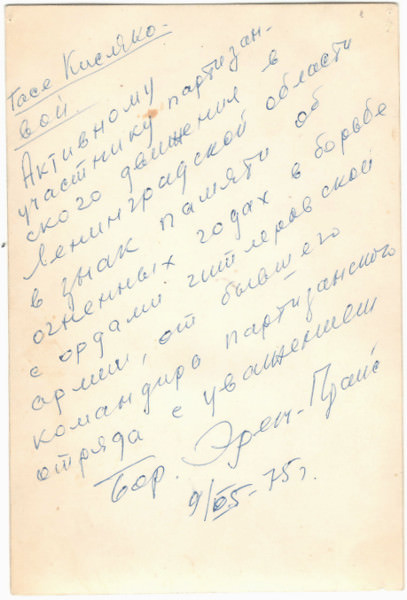 Тасе Кисляко-
вой
Активному
участнику партизан-
ского движения в
Ленинградской области
в знак памяти об
огненных годах в борьбе
с ордами гитлеровской
армии, от бывшего
командира партизанского
отряда с уважением
Бор. Эрен-Прайс
9/05-75 г.